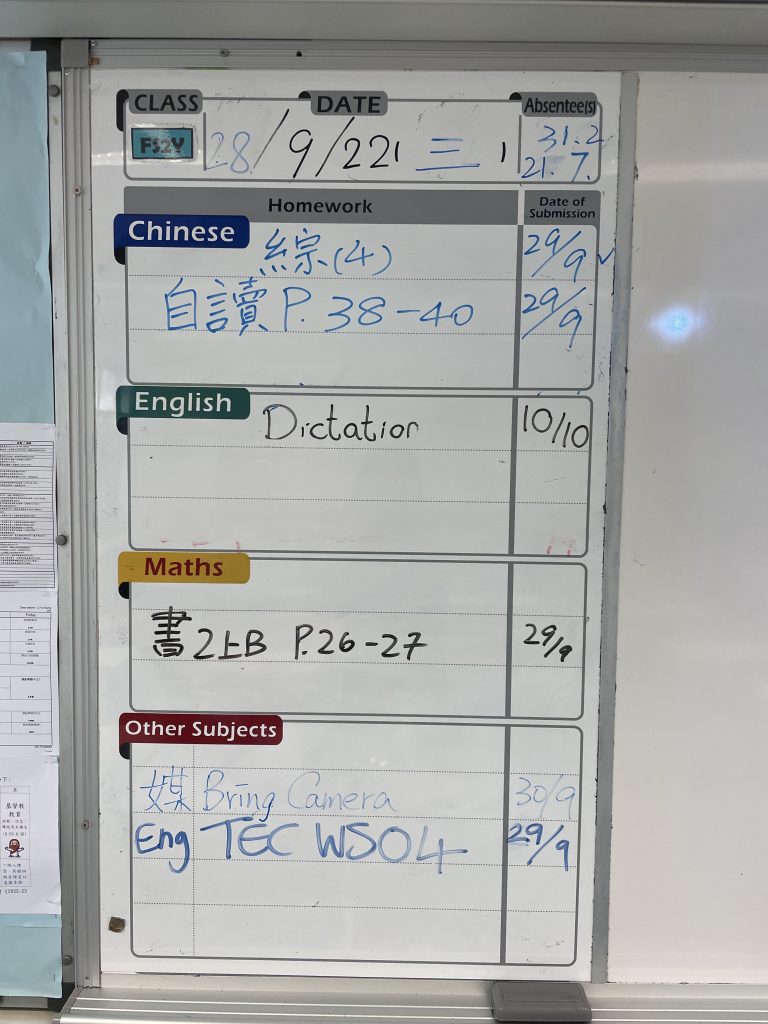 CLASS DATE Absentee(s)
FS2Y 28/9/22, 三, 31.2
21.7.
Homework Date of Submission
Chinese
綜(4) 29/9 ✓
自讀 P. 38-40 29/9
English
Dictation 10/10
Maths
書2上B P.26-27 29/9
Other Subjects
媒 Bring Camera 30/9
Eng TEC WS04 29/9
Friday
基督教
教育